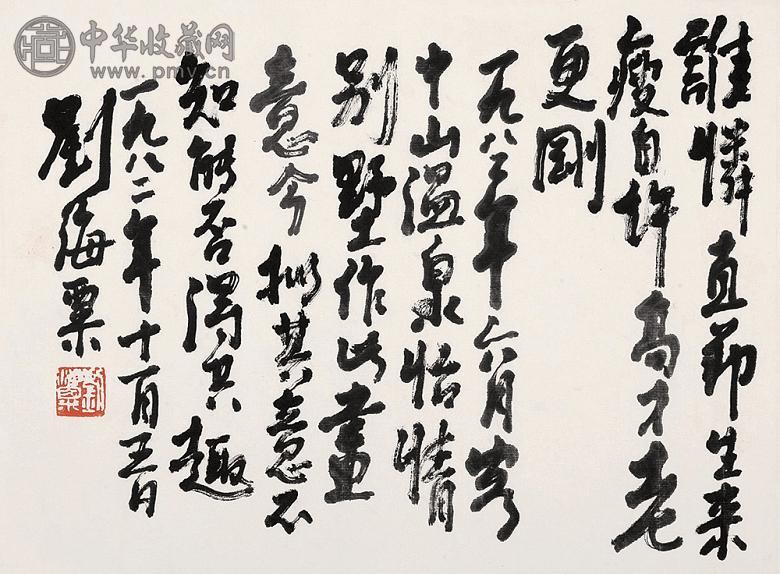 誰憐直節生来
瘦自許高才老
更剛
一九八二年六月寄
中山溫泉怡情
别墅作此畫
意今擬其意不
知能否得其趣
一九八二年十一月五日
劉海粟
中华收藏网
www.pmv.cn